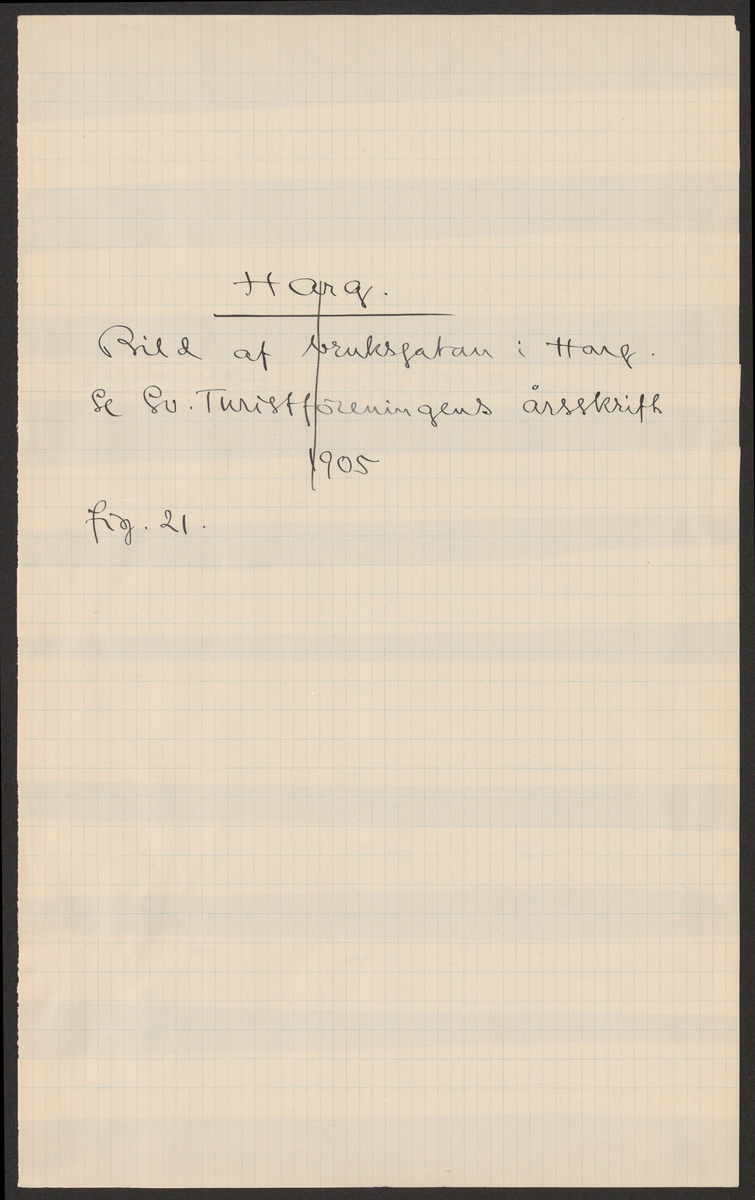 Harg.
Bild af bruksgatan i Harg.
Se Sv. Turistföreningens årsskrift
1905
fig. 21.